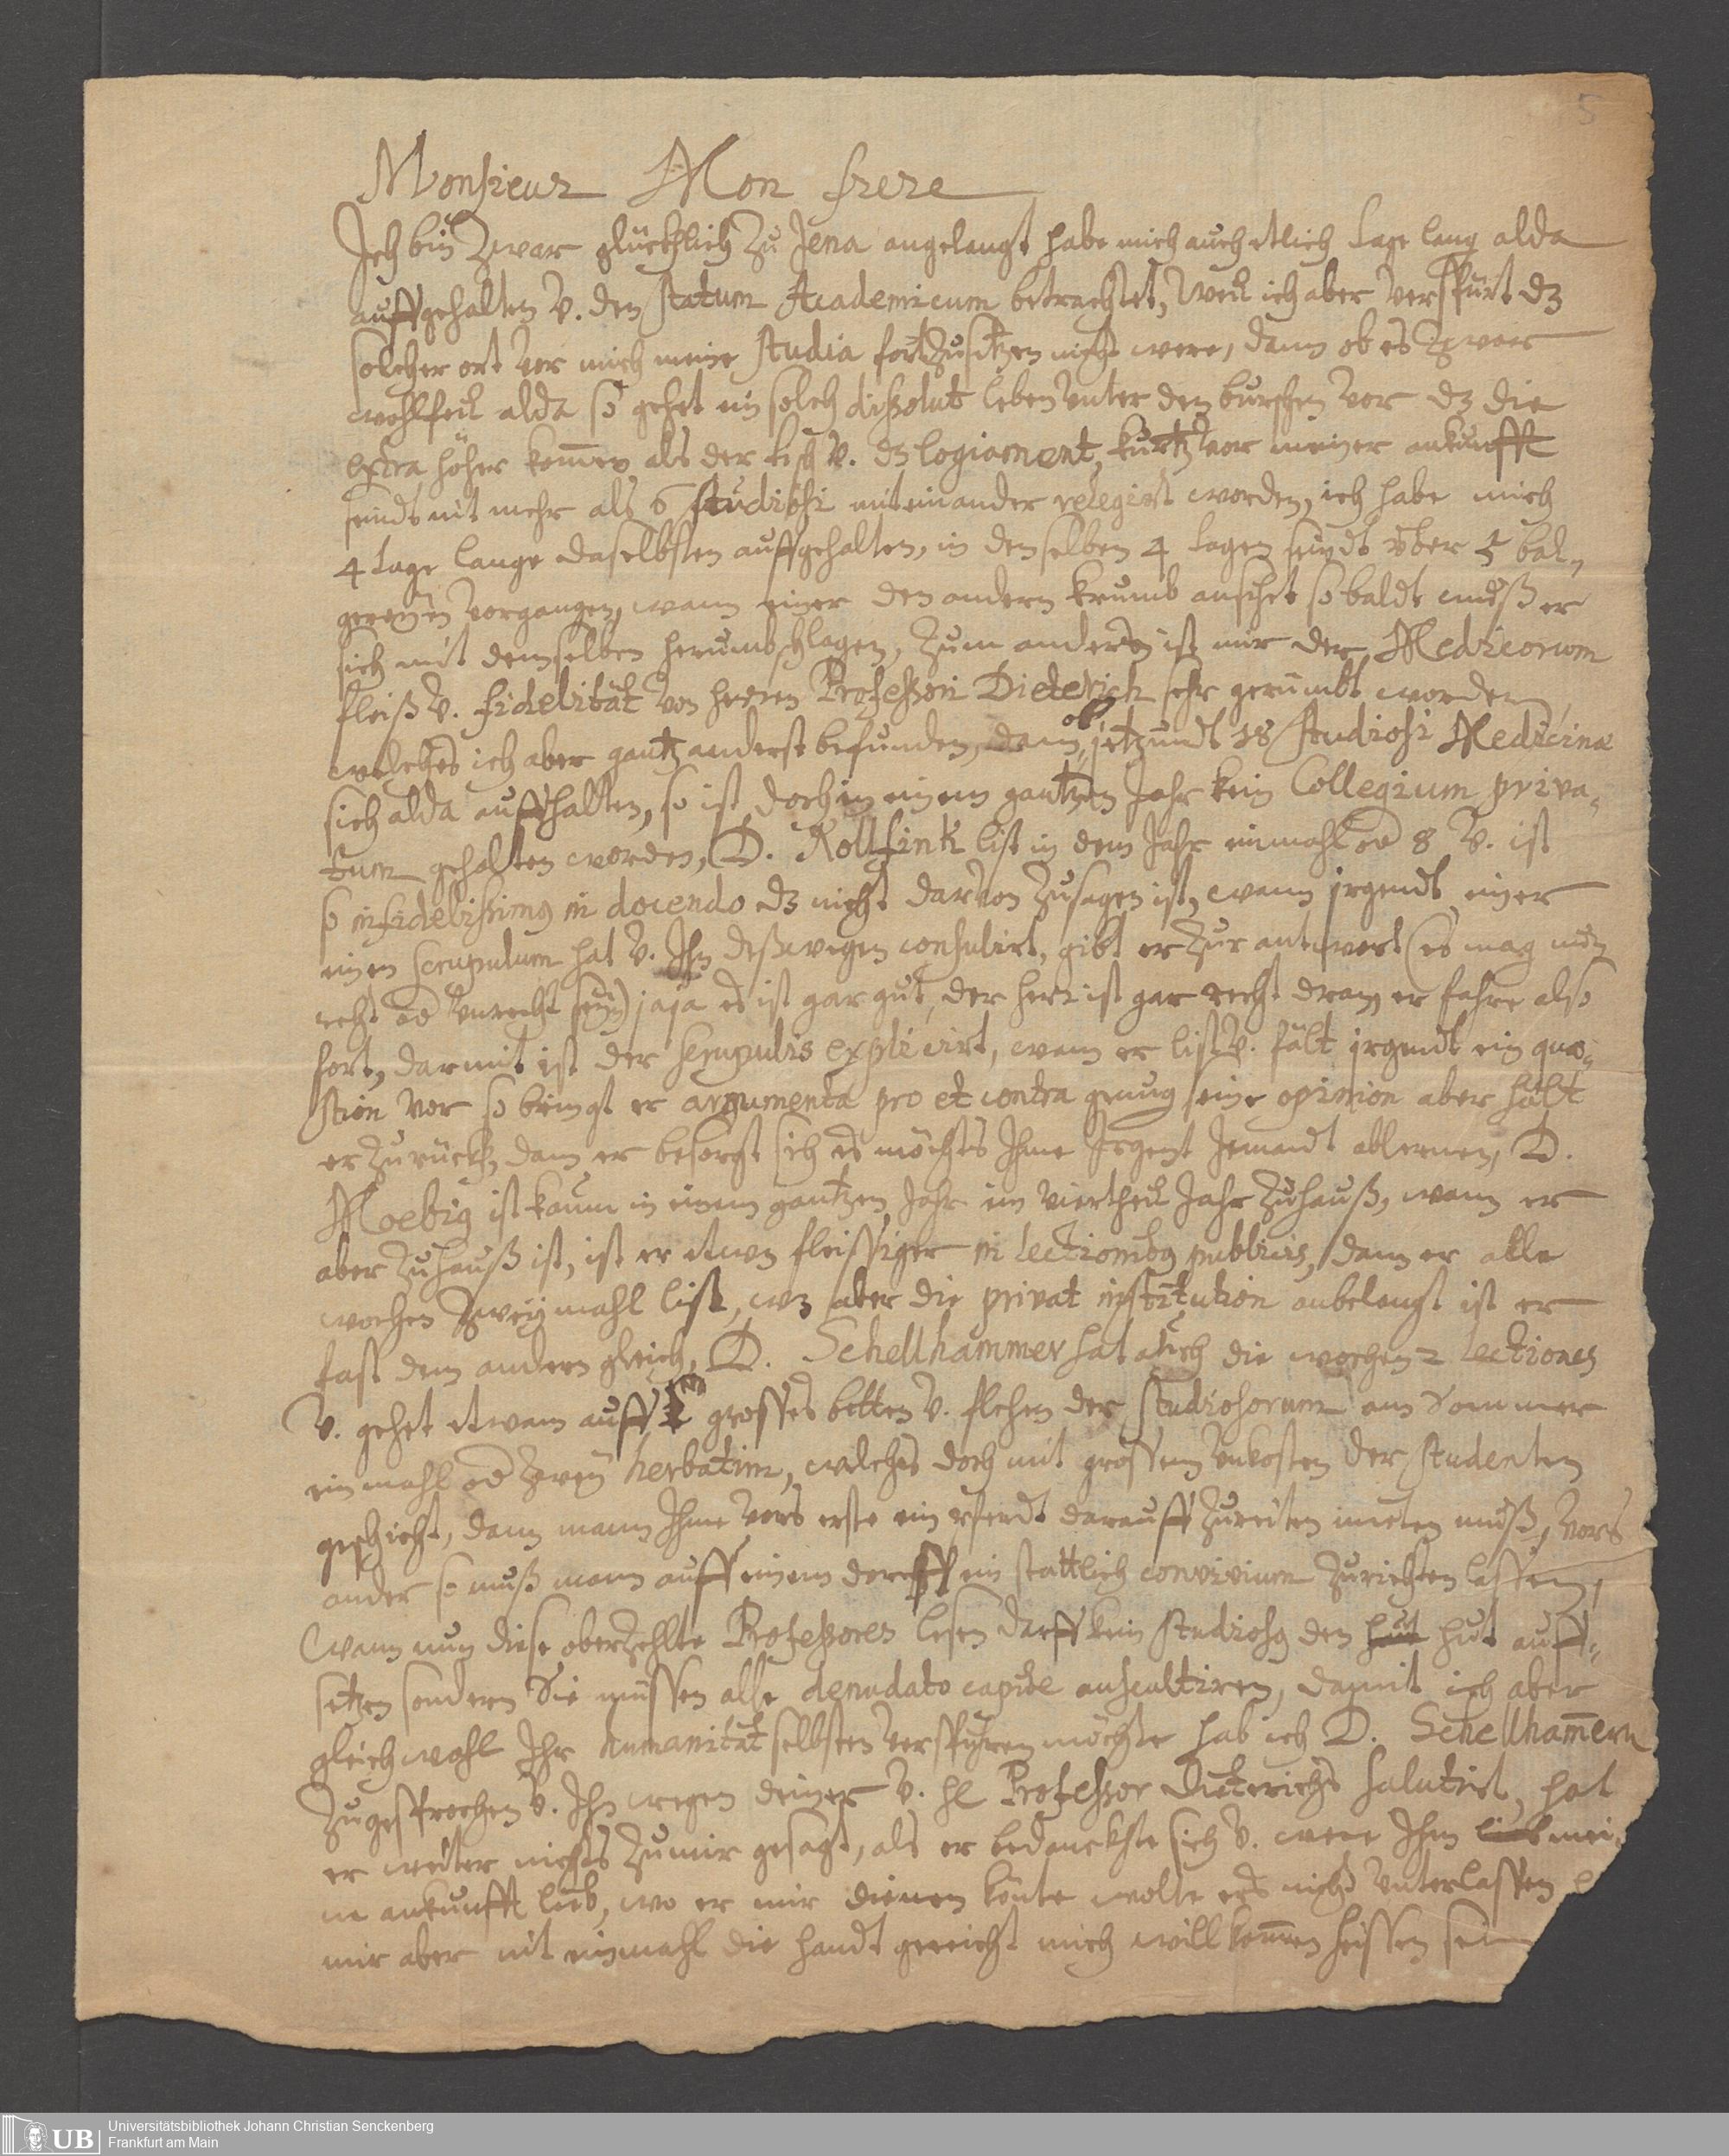 5
Monsieur Mon frere
Ich bin zwar glücklich zu Jena angelangt habe mich auch etlich tage lang alda
auffgehalten v. den statum Academicum betrachtet, weil ich aber verspürt dz
solcher ort vor mich meine studia fortzusetzen nicht were, dann ob es zwar
wohlfeil alda so gehet ein solch dissolut leben unter den burschen vor dz die
extra höher kommen als der tisch v. dz logiament, kurtz vor meiner ankunfft
seindt nit mehr als 6 studiosi miteinander relegirt worden, ich habe mich
4 tage lange daselbsten auffgehalten, in denselben 4 tagen seindt über 5 bal-
gereyen vorgangen, wann einer den andern krumb ansihet so baldt muß er
sich mit demselben herumb schlagen, Zum andern ist mir der Medicorum
fleiß v. fidelität von herren Professori Dieterich sehr gerümbt worden,
welches ich aber gantz anderst befunden, dann ob jetzundt 18 studiosi Medicinæ
sich alda auffhalten, so ist doch in einem gantzen Jahr kein Collegium priva-
tum gehalten worden, D. Rollfink list in dem Jahr einmahl od 8 v. ist
so infidelissimus in docendo dz nicht darvon zusagen ist, wann irgendt einer
einen scrupulum hat v. Ihn deßwegen consulirt, gibt er zur antwort (es mag nun
recht od unrecht sein) jaja es ist gar gut, der herr ist gar recht dran er fahre also
fort, darmit ist der scrupulus explicirt, wann er list v. fält irgendt ein quæ-
stion vor so bringt er argumenta pro et contra genug seine opinion aber hält
er zurück, dann er besorgt sich es möchts Ihme Irgent Jemandt ablernen, D.
Moebig ist kaum in einem gantzen Jahr ein viertheil Jahr zuhauß, wann er
aber zuhauß ist, ist er etwas fleissiger in lectionibus publicis, dann er alle
wochen zweymahl list, wz aber die privat institution anbelangt ist er
fast dem andern gleich, D. Schellhammer hat auch die wochen 2 lectiones
v. gehet etwann auff grosses bitten v. flehen der studiosorum am Sommer
ein mahl od zwey herbatim, welches doch mit grossem unkosten der studenten
geschicht, dann mann Ihme vors erste ein pferdt darauff zureiten mieten muß, vors
ander so muß mann auff einem dorff ein stattlich convivium zurichten lassen,
Wann nun diese oberzehlte Professores lesen darff kein studiosus den hut hut auff-
setzen sondern Sie müssen alle denudato capite auscultiren, damit ich aber
gleichwohl Ihr humanität selbsten verspühren möchte hab ich D. Schellhammern
zugesprochen v. Ihn wegen deiner v. hl Professor Dieterichs salutirt, hat
er weiter nichts zu mir gesagt, als er bedanckte sich v. were Ihm lieb mei-
ne ankunfft lieb, wo er mir dienen könte wolte ers nicht unterlassen
mir aber nit einmahl die handt gereicht mich willkommen heissen sein
UB
Universitätsbibliothek Johann Christian Senckenberg
Frankfurt am Main